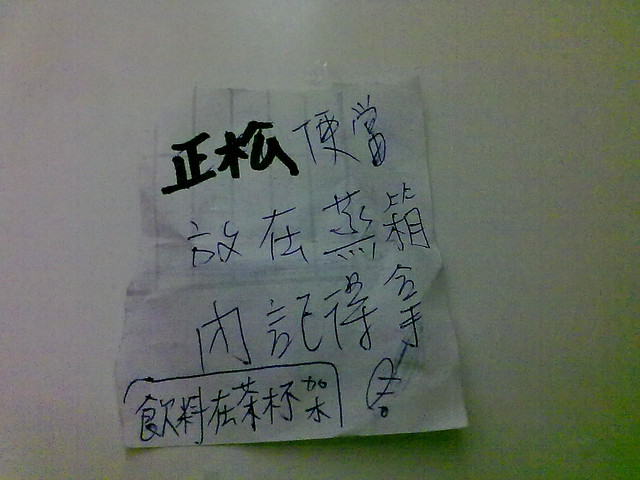 正松便當
放在蒸箱
內記得拿
飲料在茶杯加水